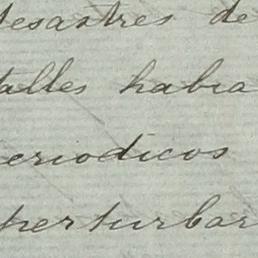 desastres de
talles habia
eriodicos
perturbar